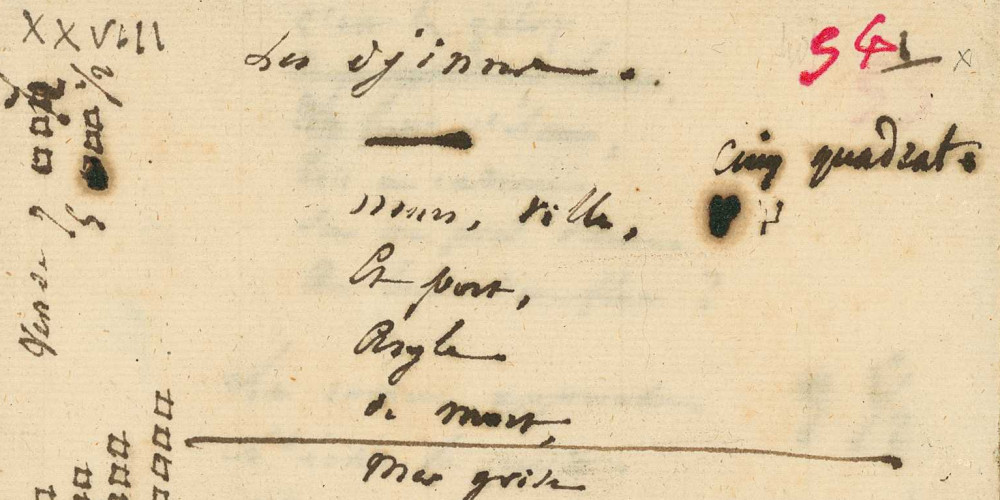 XXVIII
Les djinns.
54
cinq quadrats
murs, ville,
Et port,
Asyle
de mort,
Mer grise
Vers de